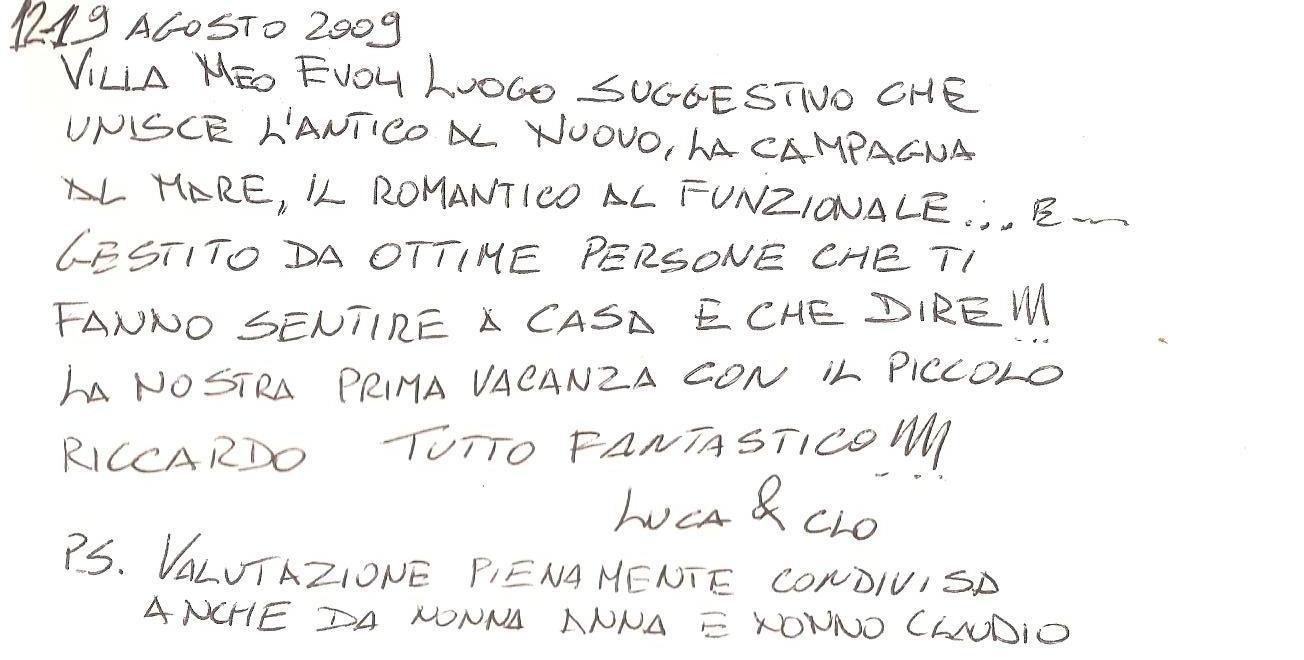 12-19 AGOSTO 2009
VILLA MEO EVOLI LUOGO SUGGESTIVO CHE
UNISCE L'ANTICO AL NUOVO, LA CAMPAGNA
AL MARE, IL ROMANTICO AL FUNZIONALE... E...
GESTITO DA OTTIME PERSONE CHE TI
FANNO SENTIRE A CASA E CHE DIRE!!!
LA NOSTRA PRIMA VACANZA CON IL PICCOLO
RICCARDO TUTTO FANTASTICO!!!!
LUCA & CLO
PS. VALUTAZIONE PIENAMENTE CONDIVISA
ANCHE DA NONNA ANNA E NONNO CLAUDIO